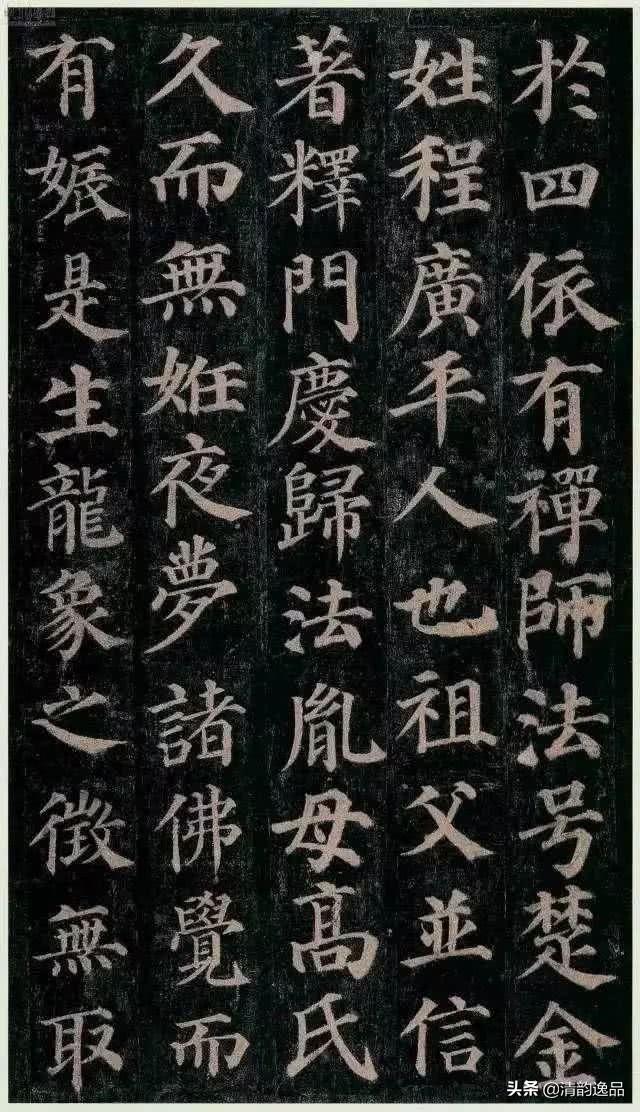 於四依有禪師法号楚金
姓程廣平人也祖父並信
著釋門慶歸法胤母高氏
久而無姙夜夢諸佛覺而
有娠是生龍象之徵無取
头条 @清韵逸品